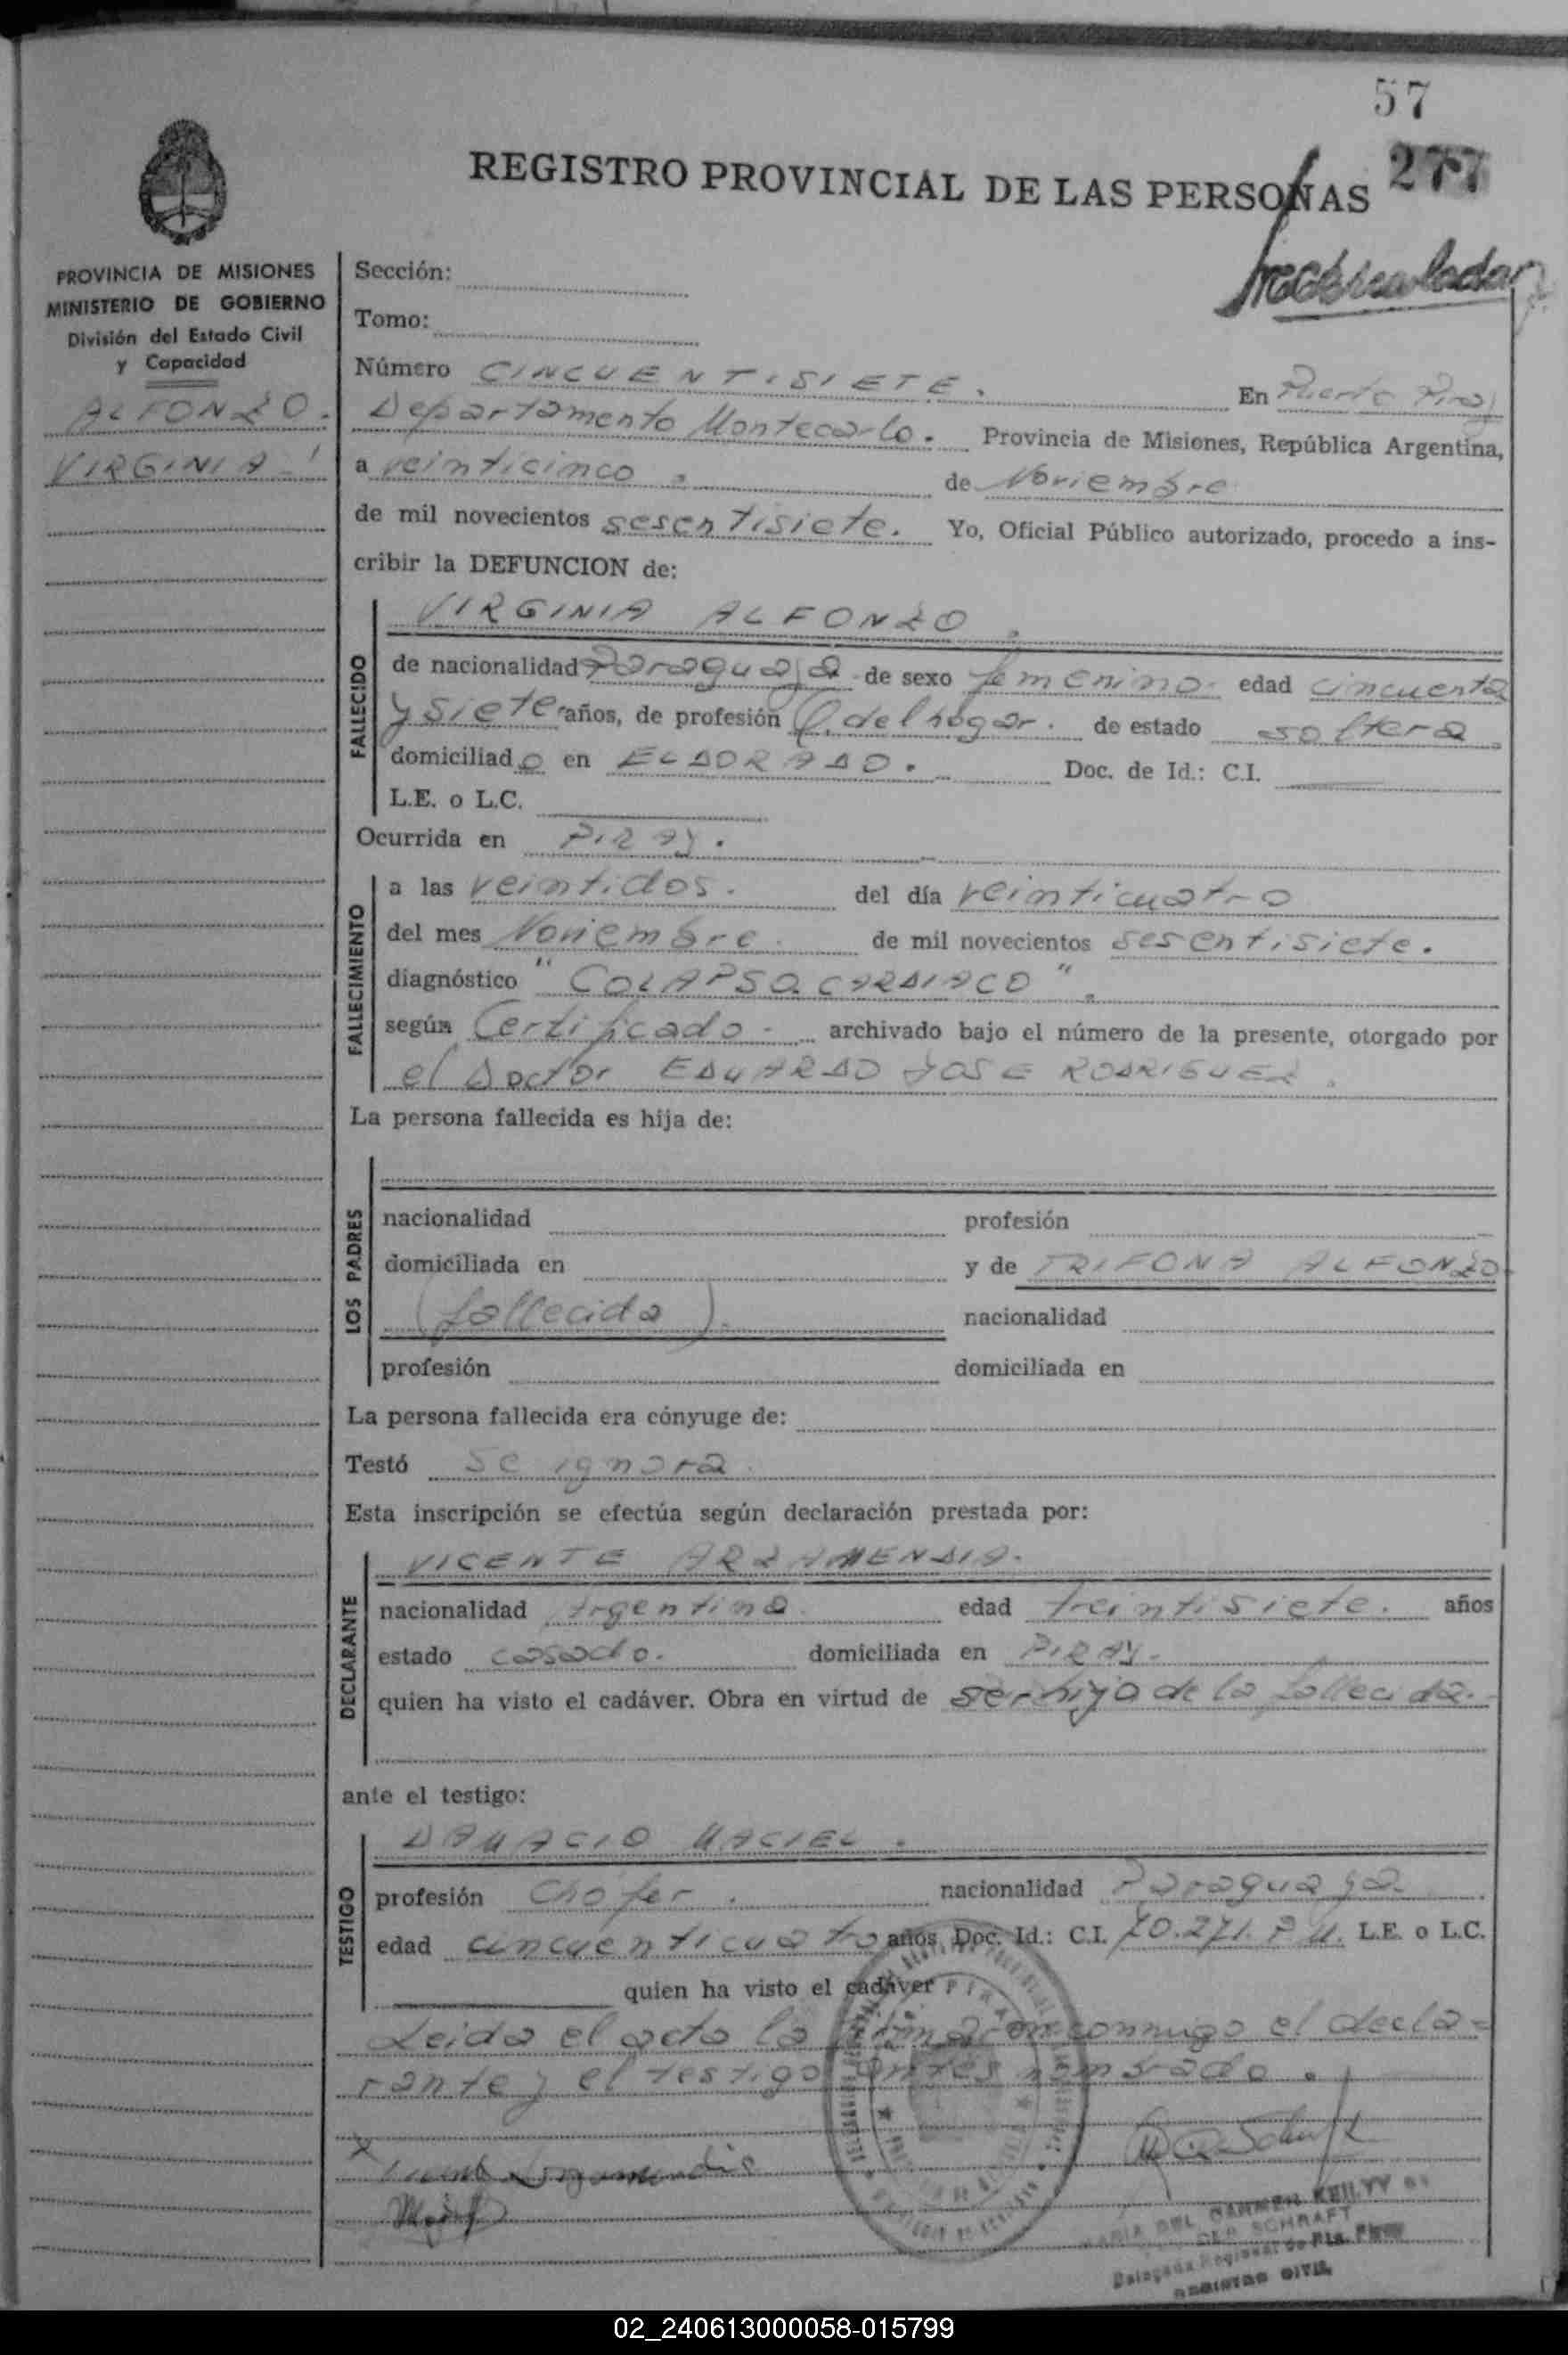 57
REGISTRO PROVINCIAL DE LAS PERSONAS 277
PROVINCIA DE MISIONES
MINISTERIO DE GOBIERNO
División del Estado Civil
y Capacidad
ALFONZO.
VIRGINIA
Sección:
Tomo:
Número CINCUENTISIETE. En Puerto Piray
Departamento Montecarlo. Provincia de Misiones, República Argentina,
a veinticinco. de Noviembre
de mil novecientos sesentisiete. Yo, Oficial Público autorizado, procedo a ins-
cribir la DEFUNCION de:
FALLECIDO
VIRGINIA ALFONZO.
de nacionalidad Paraguaya de sexo femenino edad cincuenta
y siete años, de profesión Q. del hogar. de estado soltera
domiciliado en ELDORADO. Doc. de Id.: C.I.
L.E. o L.C.
Ocurrida en PIRAY.
FALLECIMIENTO
a las veintidos. del día veinticuatro
del mes Noviembre. de mil novecientos sesentisiete.
diagnóstico "COLAPSO CARDIACO".
según Certificado archivado bajo el número de la presente, otorgado por
el Doctor EDUARDO JOSE RODRIGUEZ.
La persona fallecida es hija de:
LOS PADRES
nacionalidad profesión
domiciliada en y de TRIFONA ALFONZO
(fallecida). nacionalidad
profesión domiciliada en
La persona fallecida era cónyuge de:
Testó se ignora
Esta inscripción se efectúa según declaración prestada por:
DECLARANTE
VICENTE ARZAMENDIA.
nacionalidad Argentina edad treintisiete. años
estado casado. domiciliada en PIRAY.
quien ha visto el cadáver. Obra en virtud de ser hijo de la fallecida.
ante el testigo:
TESTIGO
DAMACIO MACIEL.
profesión Chofer. nacionalidad Paraguaya
edad cincuenticuatro años Doc. Id.: C.I. 70.271. L.E. o L.C.
quien ha visto el cadáver
Leida el acta la firman conmigo el decla-
rante y el testigo antes nombrado.
MARIA DEL CARMEN KEILTY DE
DER SCHRAFT
Delegada Regional de Pto. Piray
REGISTRO CIVIL
02_240613000058-015799